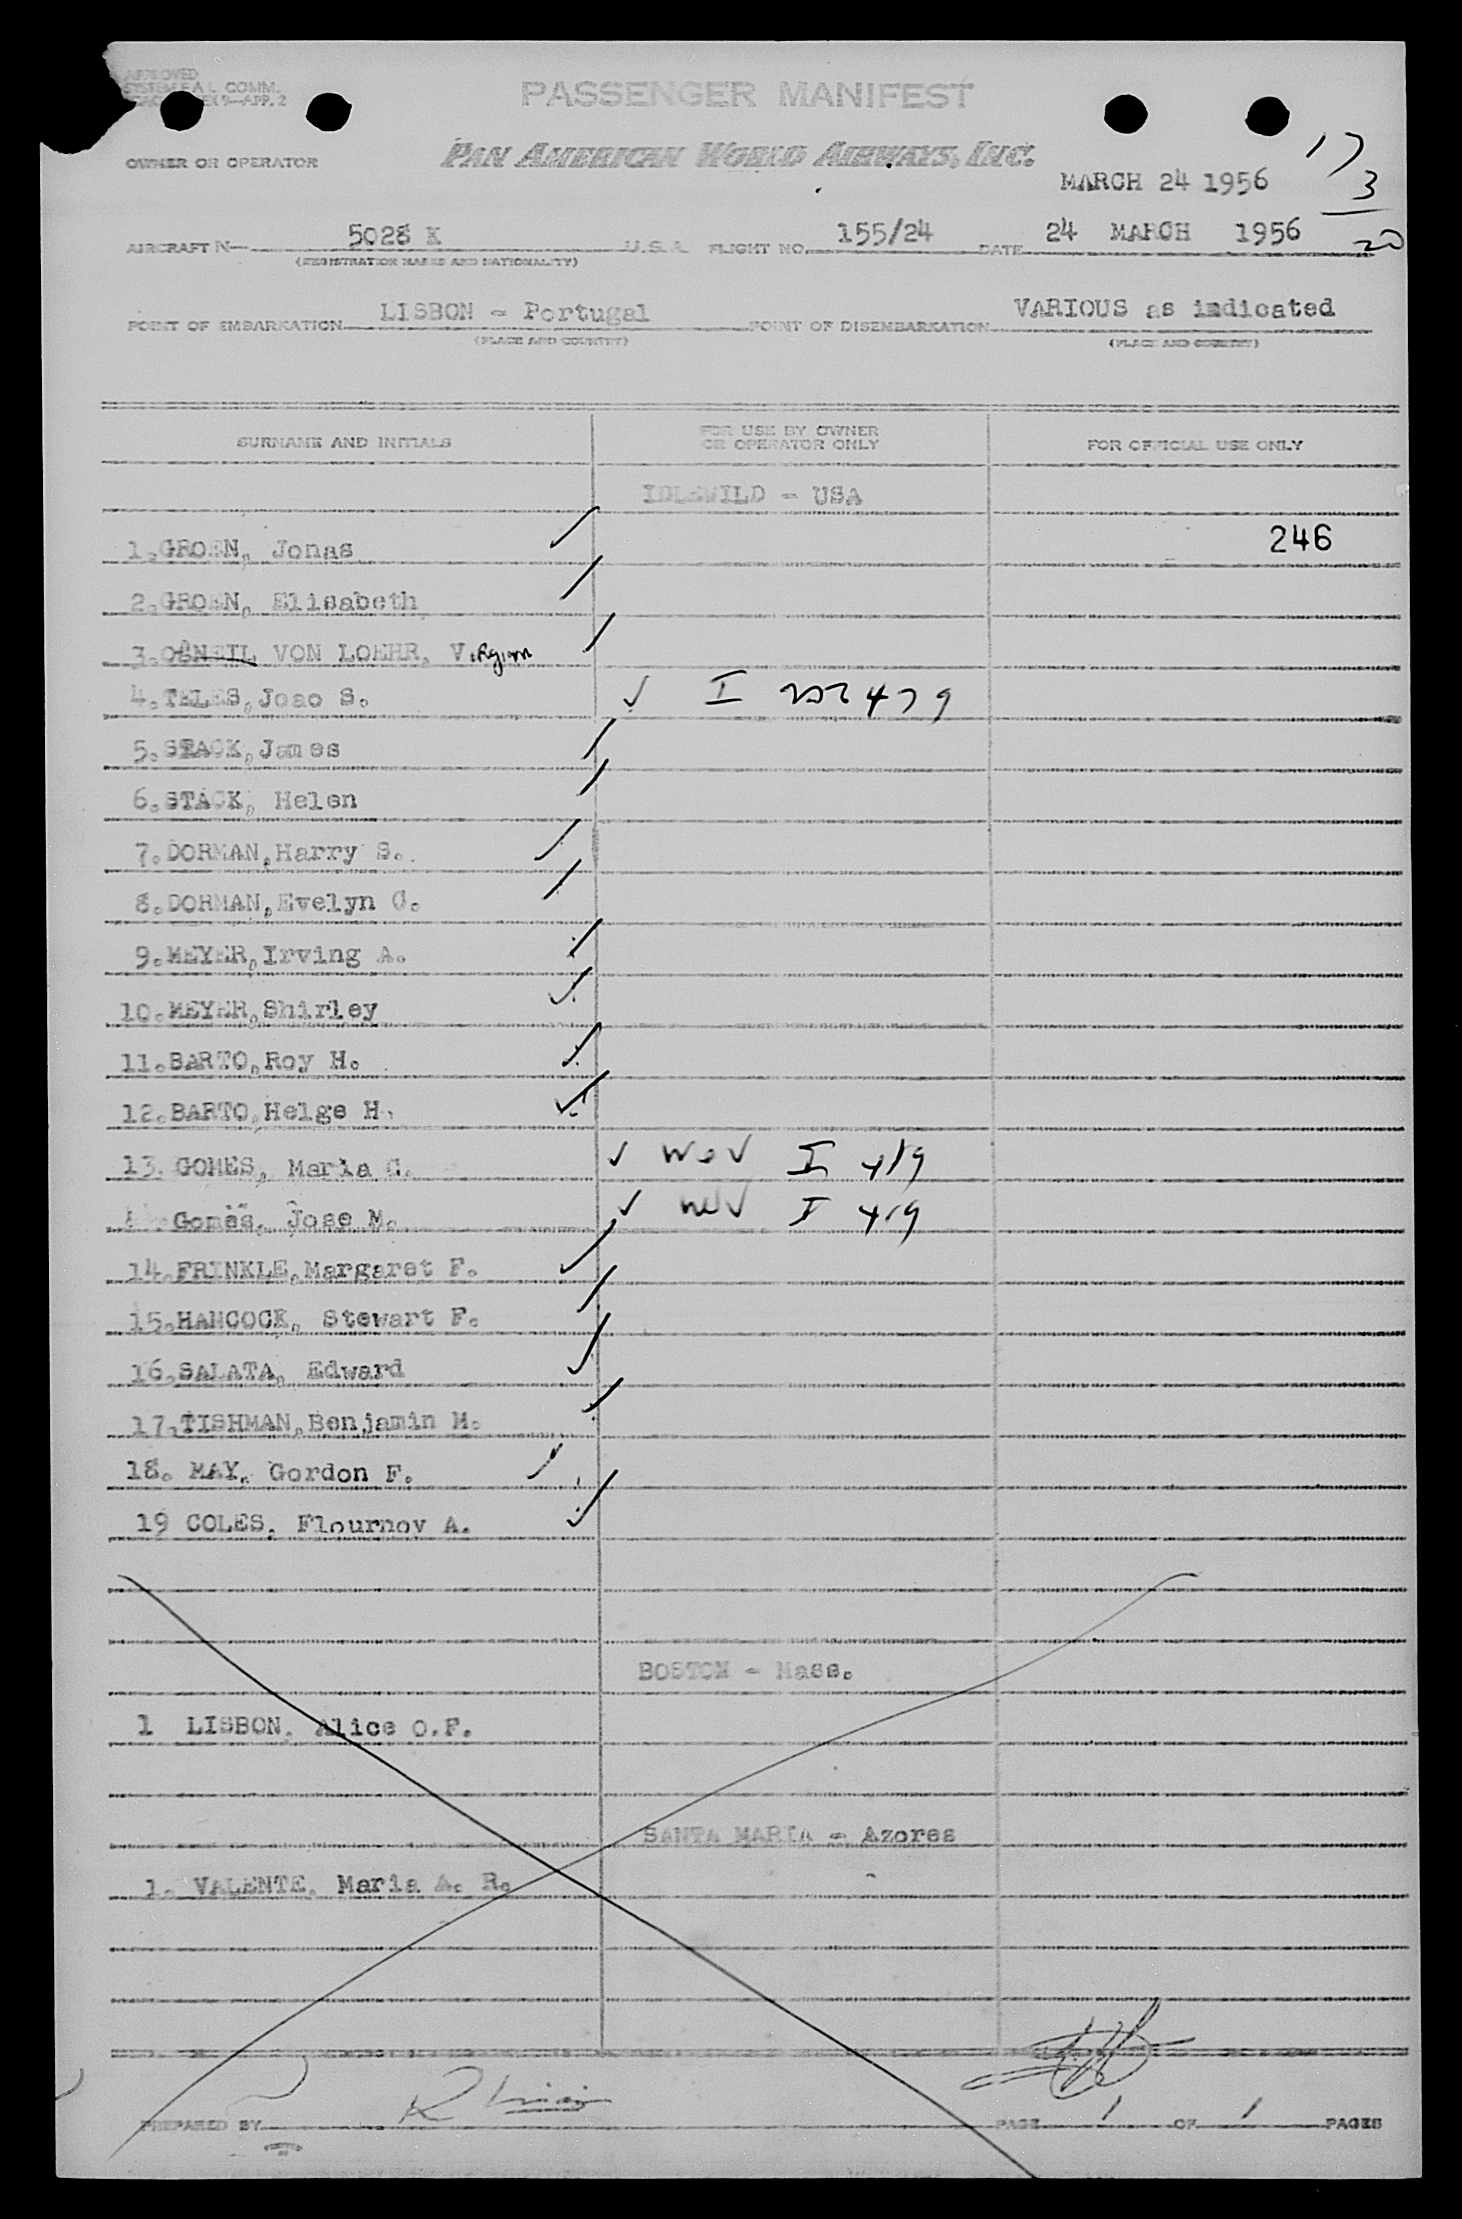 APPROVED
SYSTEM F.A.L. COMM.
9—APP. 2
PASSENGER MANIFEST
OWNER OR OPERATOR
PAN AMERICAN WORLD AIRWAYS, INC.
17
MARCH 24 1956
3
AIRCRAFT N— 5028 K U.S.A. FLIGHT NO. 155/24 DATE 24 MARCH 1956
20
(REGISTRATION MARKS AND NATIONALITY)
POINT OF EMBARKATION LISBON - Portugal POINT OF DISEMBARKATION VARIOUS as indicated
(PLACE AND COUNTRY) (PLACE AND COUNTRY)
SURNAME AND INITIALS FOR USE BY OWNER OR OPERATOR ONLY FOR OFFICIAL USE ONLY
IDLEWILD - USA
1.GROEN, Jonas 246
2.GROEN, Elisabeth
3.O'NEIL VON LOEHR, Virginia
4.TELES, Joao S. I 222479
5.STACK, James
6.STACK, Helen
7.DORMAN, Harry S.
8.DORMAN, Evelyn C.
9.MEYER, Irving A.
10.MEYER, Shirley
11.BARTO, Roy H.
12.BARTO, Helge H.
13. GOMES, Maria C. I 419
Gomes, Jose M. I 419
14.FRINKLE, Margaret F.
15.HANCOCK, Stewart F.
16.SALATA, Edward
17.TISHMAN, Benjamin M.
18. MAY, Gordon F.
19 COLES, Flournoy A.
BOSTON - Mass.
1 LISBON, Alice O.F.
SANTA MARIA - Azores
1. VALENTE, Maria A. R.
PREPARED BY PAGE 1 OF 1 PAGES